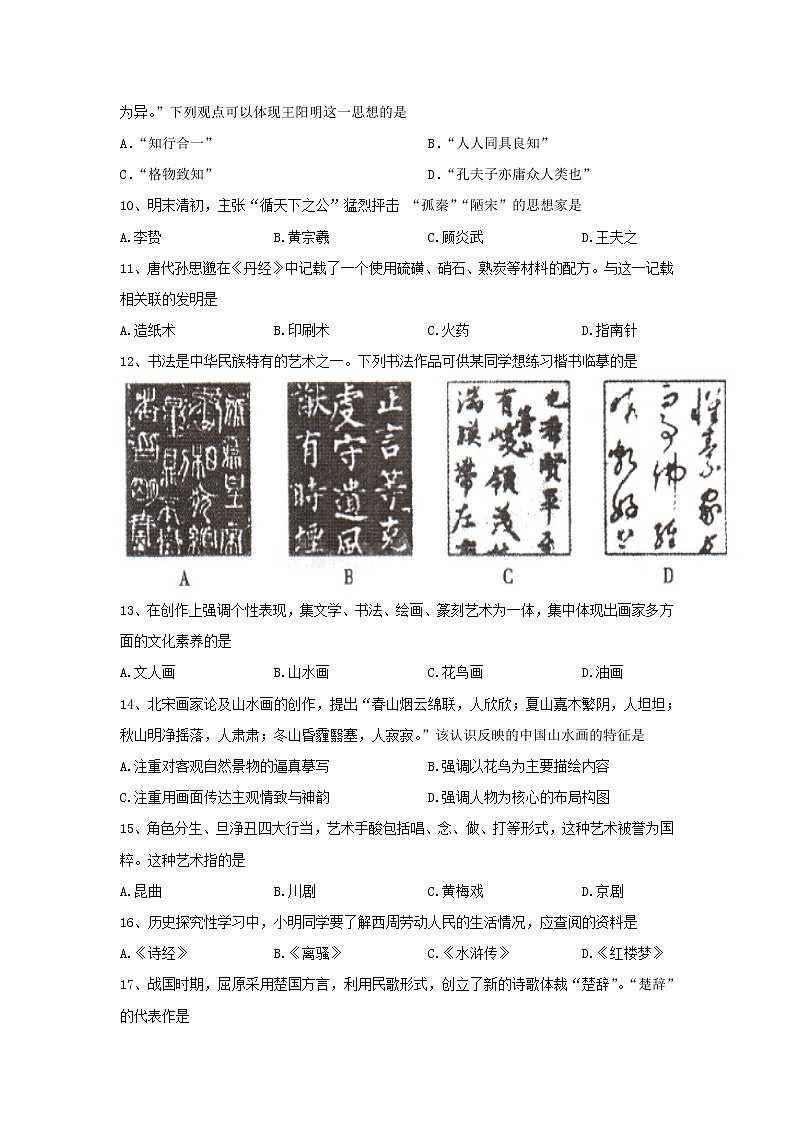 为异。”下列观点可以体现王阳明这一思想的是
A.“知行合一” B.“人人同具良知”
C.“格物致知” D.“孔夫子亦庸众人类也”
10、明末清初，主张“循天下之公”猛烈抨击 “孤秦”“陋宋”的思想家是
A.李贽 B.黄宗羲 C.顾炎武 D.王夫之
11、唐代孙思邈在《丹经》中记载了一个使用硫磺、硝石、熟炭等材料的配方。与这一记载
相关联的发明是
A.造纸术 B.印刷术 C.火药 D.指南针
12、书法是中华民族特有的艺术之一。下列书法作品可供某同学想练习楷书临摹的是
正言等克
虔守遗风
猷有时堙
有峻领茂
满暎带左
A B C D
13、在创作上强调个性表现，集文学、书法、绘画、篆刻艺术为一体，集中体现出画家多方
面的文化素养的是
A.文人画 B.山水画 C.花鸟画 D.油画
14、北宋画家论及山水画的创作，提出“春山烟云绵联，人欣欣；夏山嘉木繁阴，人坦坦；
秋山明净摇落，人肃肃；冬山昏霾翳塞，人寂寂。”该认识反映的中国山水画的特征是
A.注重对客观自然景物的逼真摹写 B.强调以花鸟为主要描绘内容
C.注重用画面传达主观情致与神韵 D.强调人物为核心的布局构图
15、角色分生、旦净丑四大行当，艺术手酸包括唱、念、做、打等形式，这种艺术被誉为国
粹。这种艺术指的是
A.昆曲 B.川剧 C.黄梅戏 D.京剧
16、历史探究性学习中，小明同学要了解西周劳动人民的生活情况，应查阅的资料是
A.《诗经》 B.《离骚》 C.《水浒传》 D.《红楼梦》
17、战国时期，屈原采用楚国方言，利用民歌形式，创立了新的诗歌体裁“楚辞”。“楚辞”
的代表作是